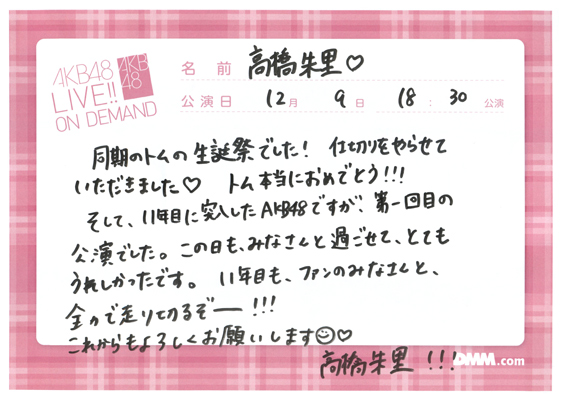 AKB48
LIVE!!
ON DEMAND
AKB
48
名前 高橋朱里♡
公演日 12月 9日 18:30公演
同期のトムの生誕祭でした! 仕切りをやらせて
いただきました♡ トム本当におめでとう!!!
そして、11年目に突入したAKB48ですが、第一回目の
公演でした。この日も、みなさんと過ごせて、とても
うれしかったです。 11年目も、ファンのみなさんと、
全力で走り切るぞー!!!
これからもよろしくお願いします☺♡
高橋朱里!!!
DMM.com